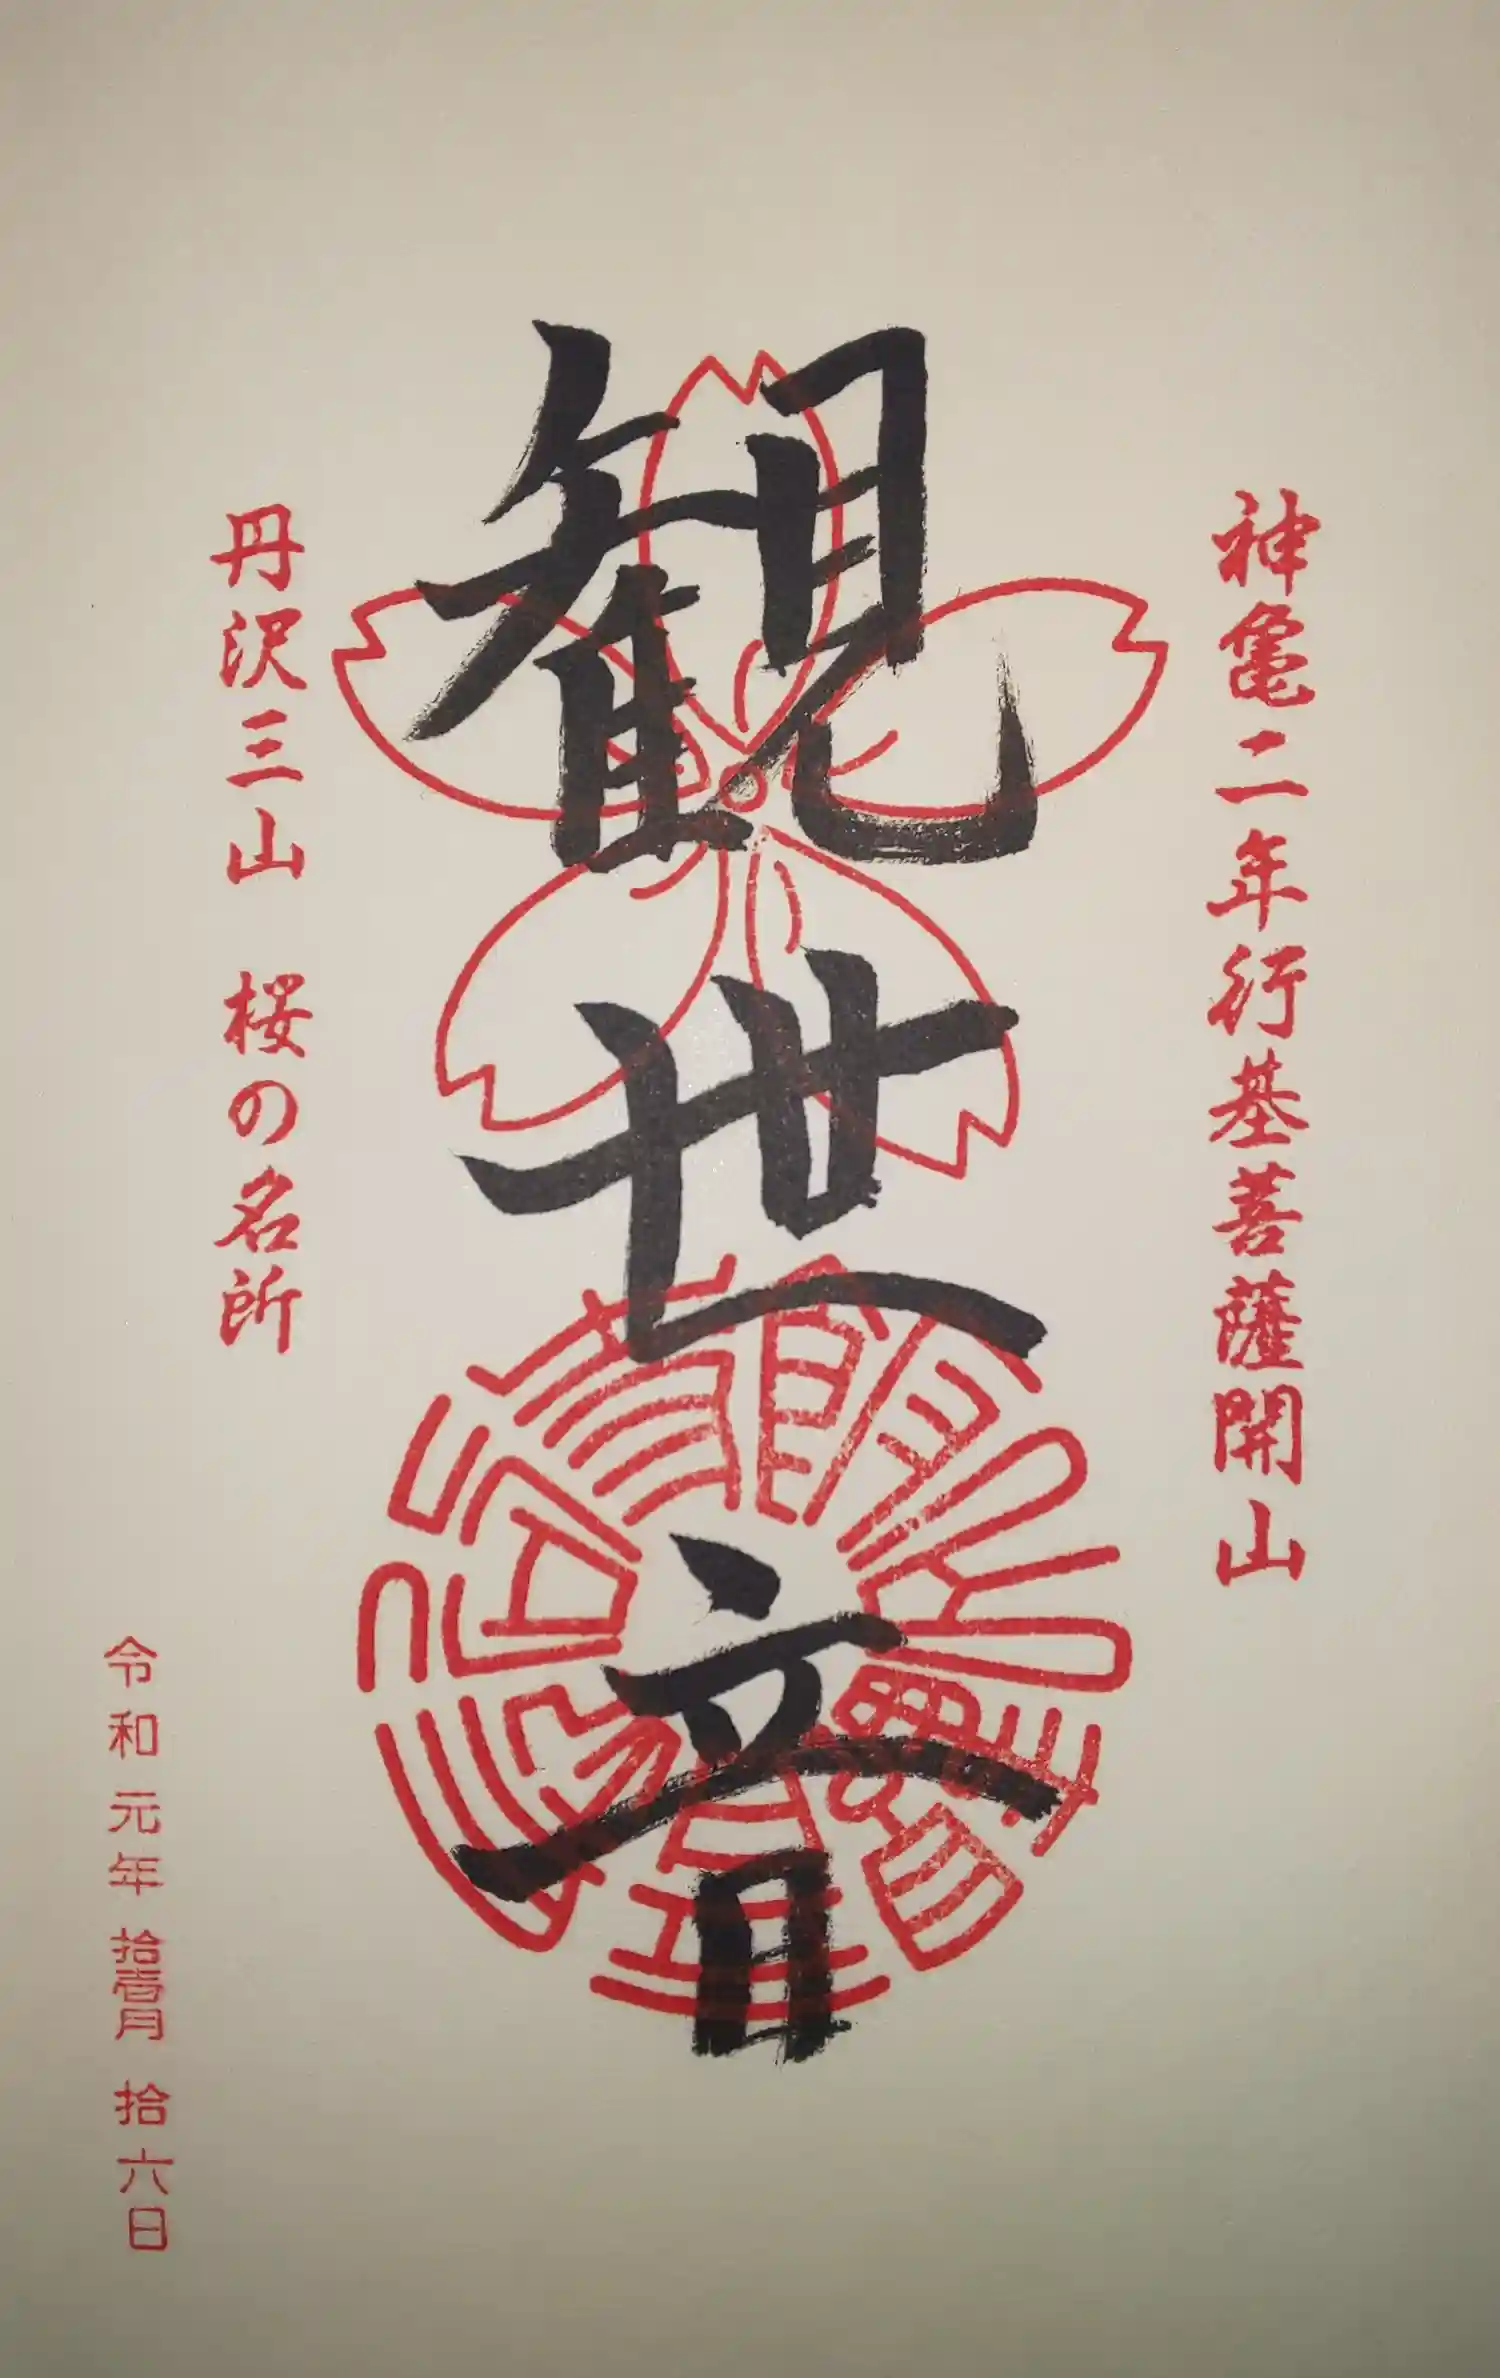 神亀二年行基菩薩開山
観世音
丹沢三山 桜の名所
令和元年拾壱月拾六日